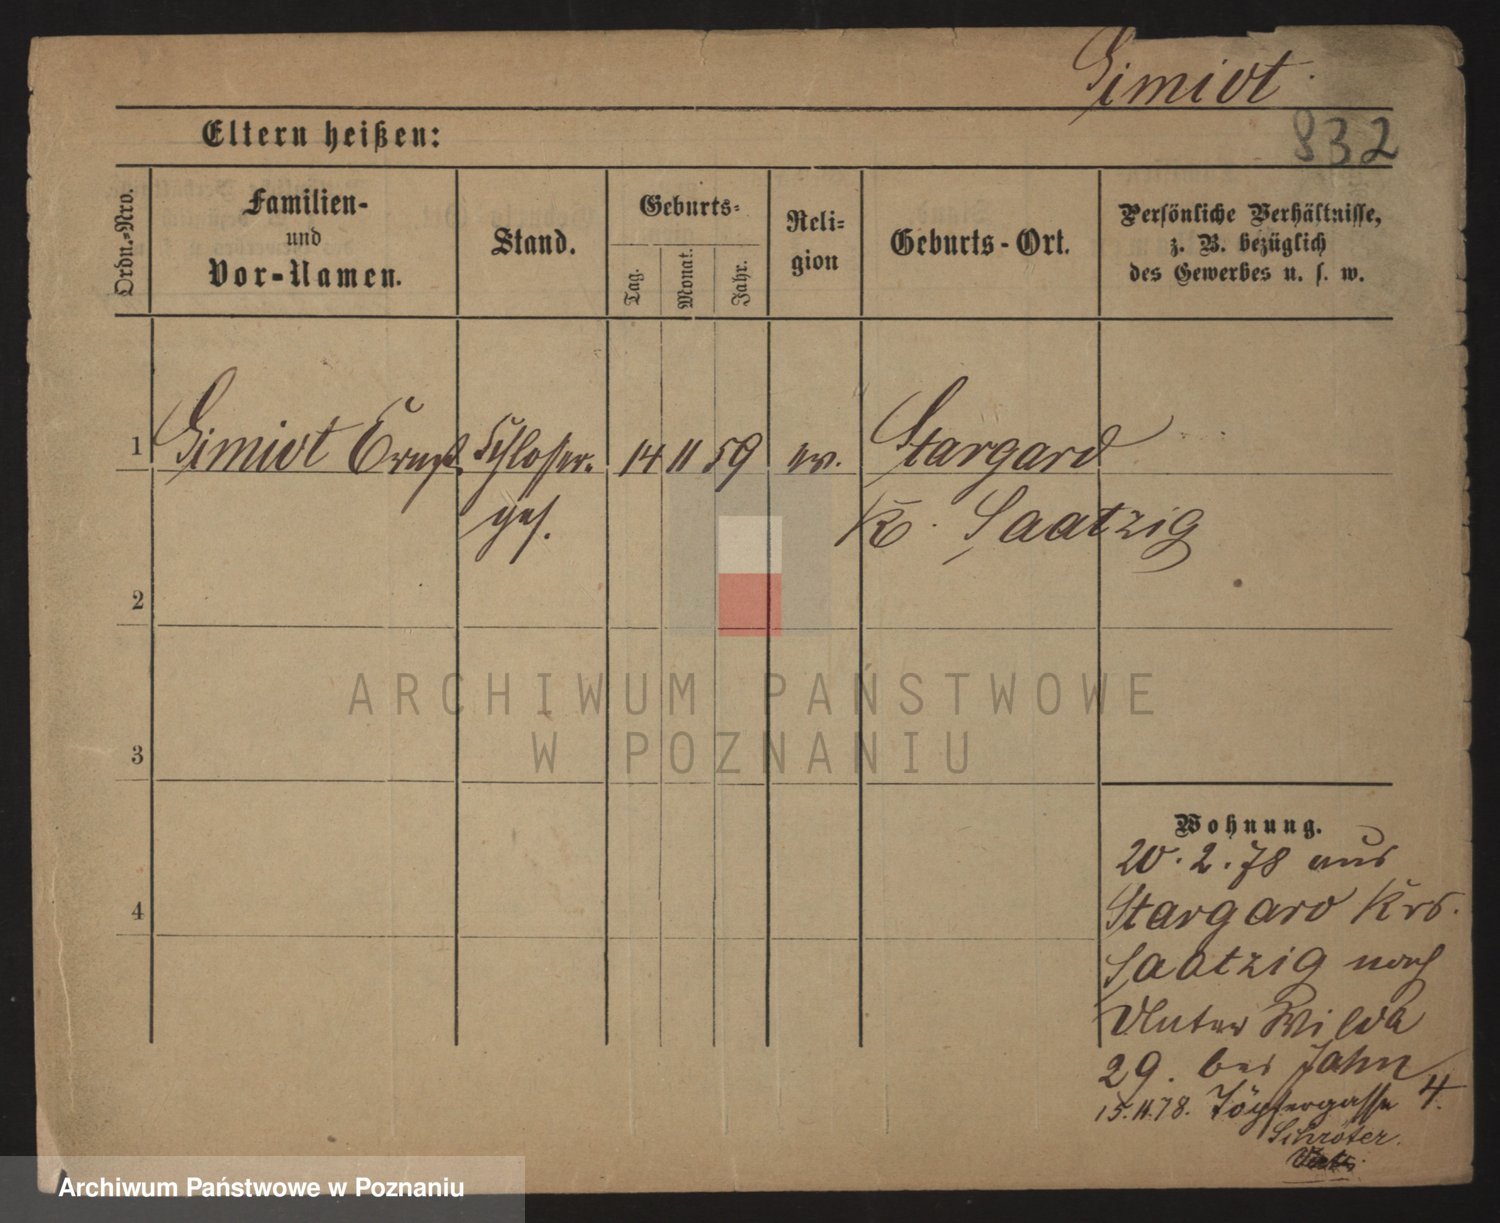 Gimiot
832
Eltern heißen:
Ordn.-Nro.
Familien-
und
Vor-Namen.
Stand.
Geburts-
Tag.
Monat.
Jahr.
Reli-
gion
Geburts-Ort.
Persönliche Verhältnisse,
z. B. bezüglich
des Gewerbes u. s. w.
1 Gimiot Ernst Schlosser- 14 11 59 ev. Stargard
ges. Kr. Saatzig
2
3
4
Wohnung.
20.2.78 aus
Stargard Krs.
Saatzig nach
Unter Wilda
29. bei Jahn
15.11.78. Töpfergasse 4.
Schröter.
ARCHIWUM PAŃSTWOWE
W POZNANIU
Archiwum Państwowe w Poznaniu